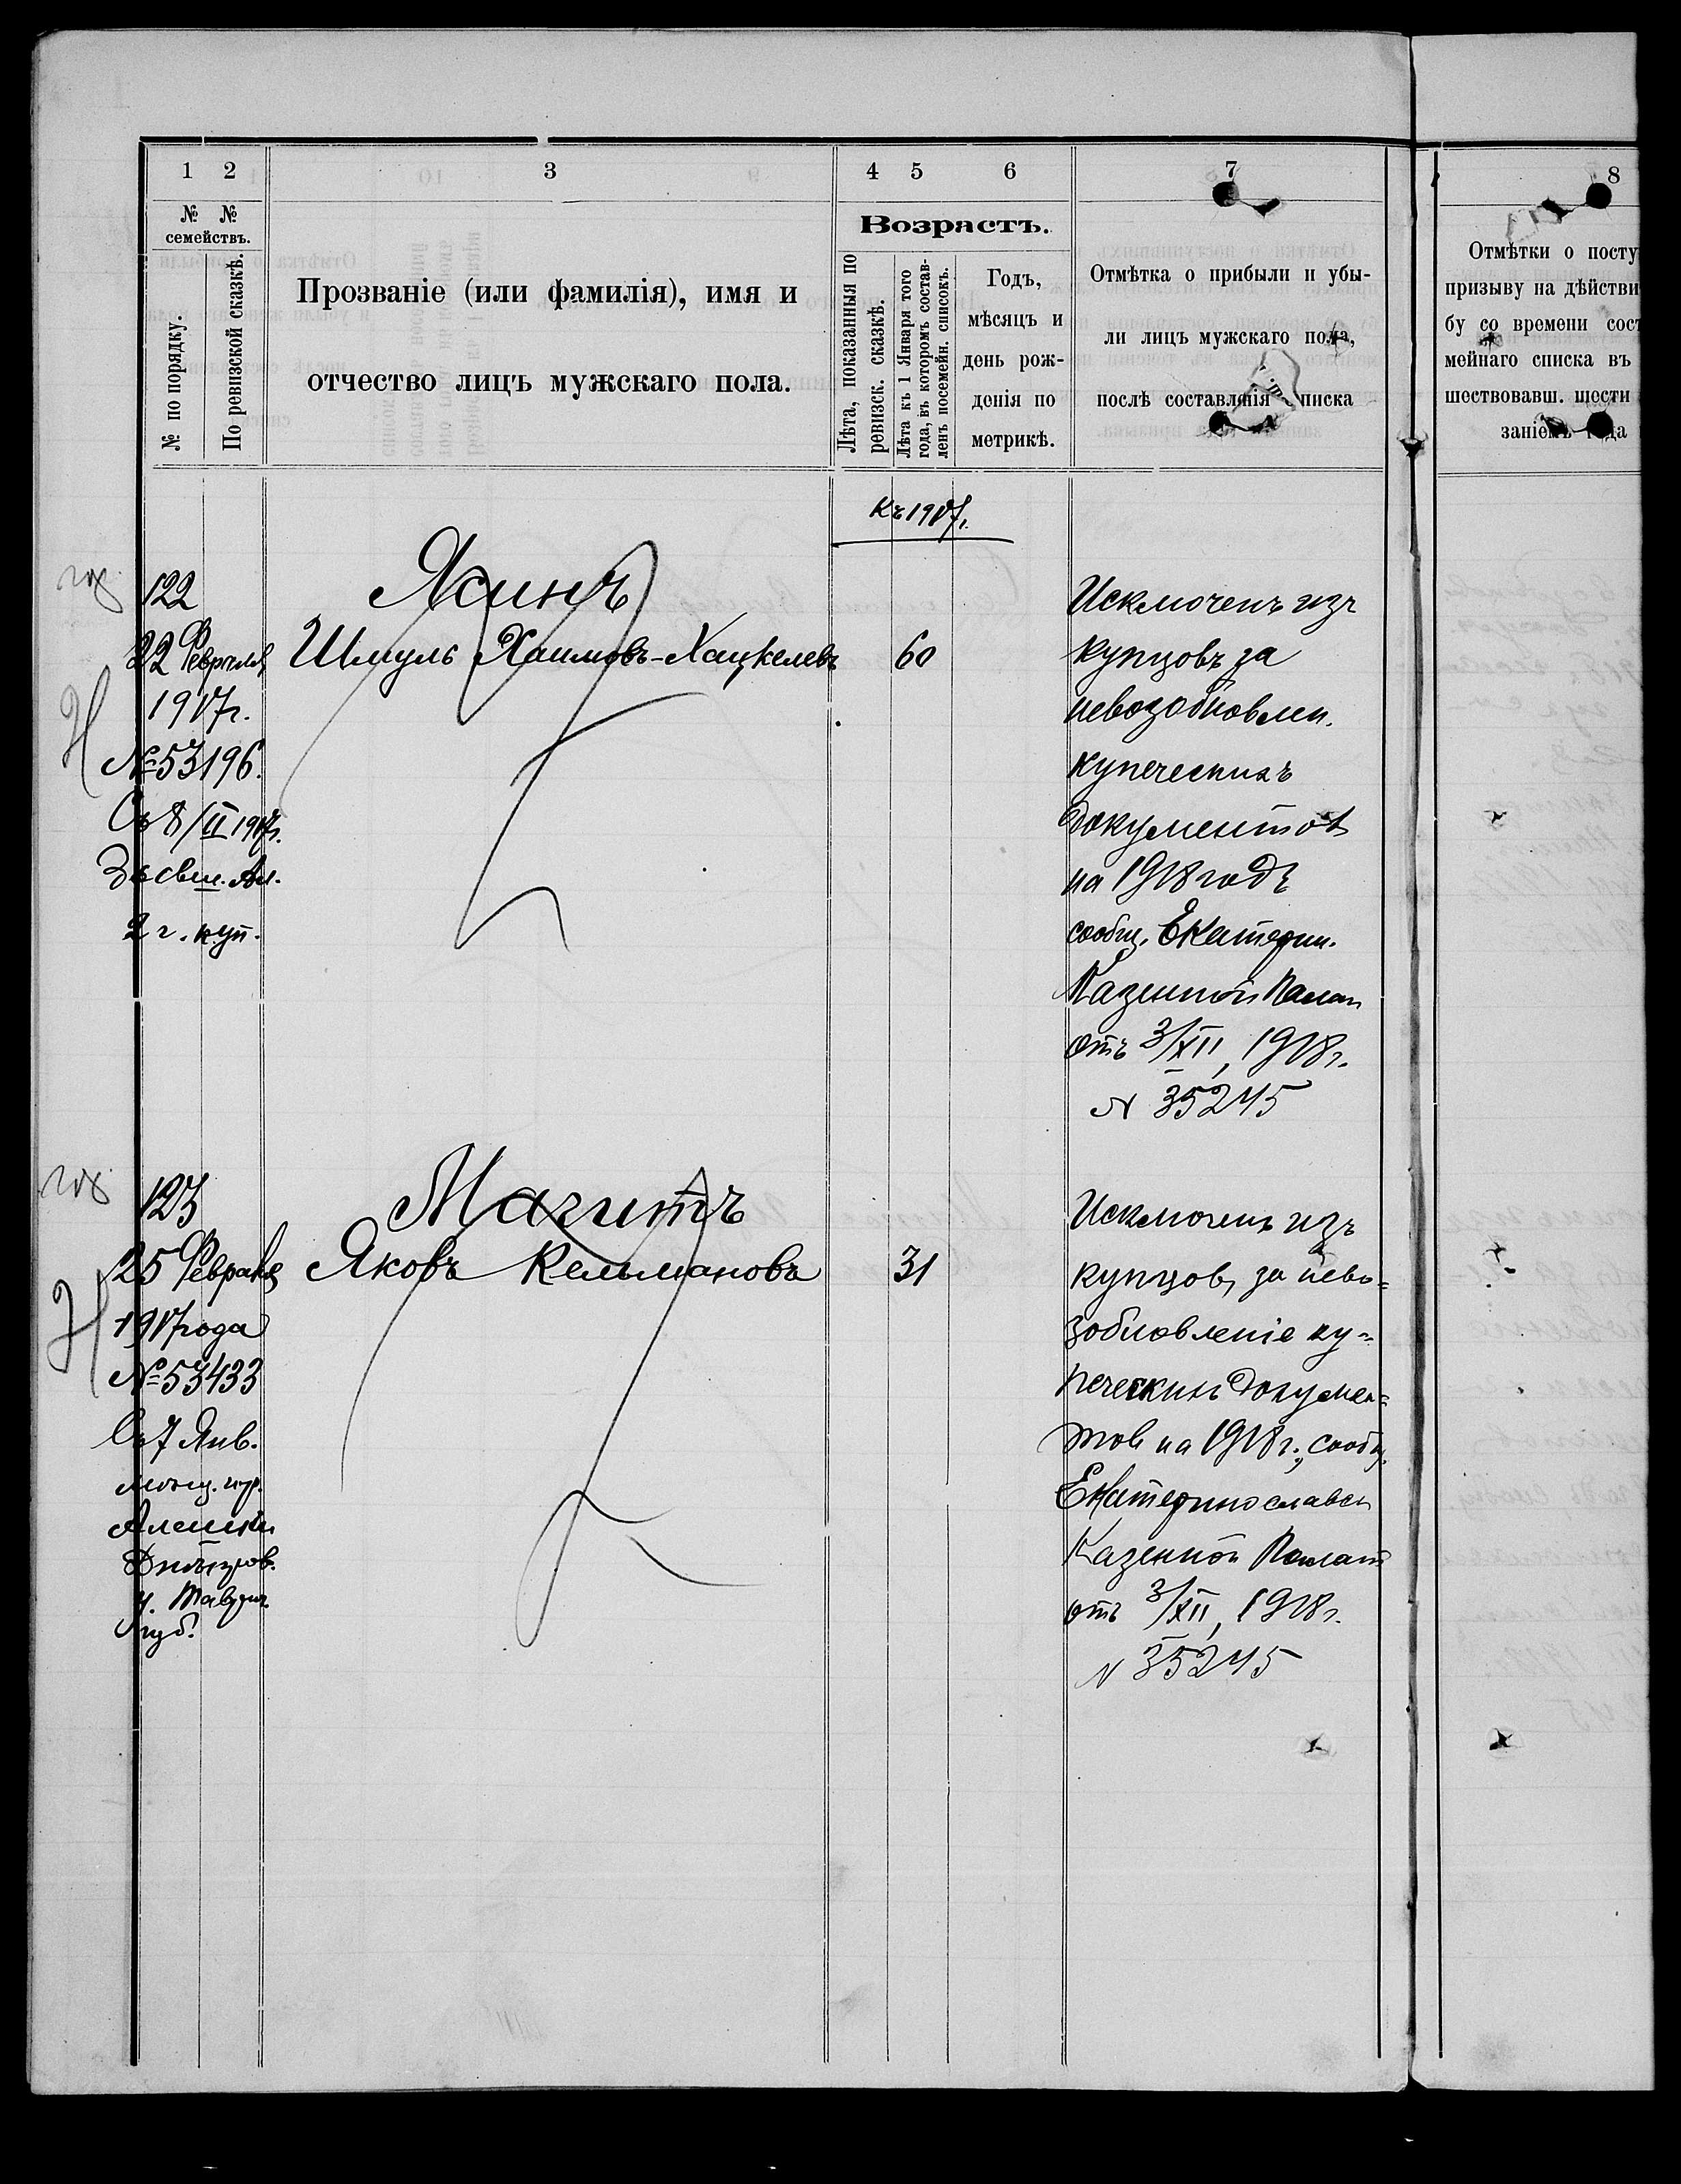 1 2 3 4 5 6 7 8
№ №
семействъ.
№ по порядку.
По ревизской сказкѣ.
Прозваніе (или фамилія), имя и
отчество лицъ мужскаго пола.
Возрастъ.
Лѣта, показанныя по
ревизск. сказкѣ.
Лѣта къ 1 Января того
года, въ которомъ состав-
ленъ посемейн. списокъ.
Годъ,
мѣсяцъ и
день рож-
денія по
метрикѣ.
Отмѣтка о прибыли и убы-
ли лицъ мужскаго пола,
послѣ составленія списка
Отмѣтки о посту
призыву на дѣйстви
бу со времени сост
мейнаго списка въ
шествовавш. шести
заніемъ года
Къ 1917г.
122
22 Февраля
1917г.
№ 53196.
Съ 8/II 1917г.
2 г. куп.
Ясинъ
Шмуль Хаимовъ-Хацкелевъ
60
Исключенъ изъ
купцовъ за
невозобновлен.
купеческихъ
документов
на 1918 годъ
сообщ. Екатерин.
Казенной Палат
отъ 3/XII, 1918г.
N 35245
123
25 Февраля
1917 года
№ 53433
Съ 7 Янв.
мѣщ. гор.
Алешки
Днѣпров.
у. Таврич.
губ.
Магитъ
Яковъ Кельмановъ
31
Исключенъ изъ
купцов, за нево=
зобновленіе ку=
печескихъ докумен=
тов на 1918 г., сообщ.
Екатеринославск
Казенной Палат
отъ 3/XII, 1918г.
N 35245